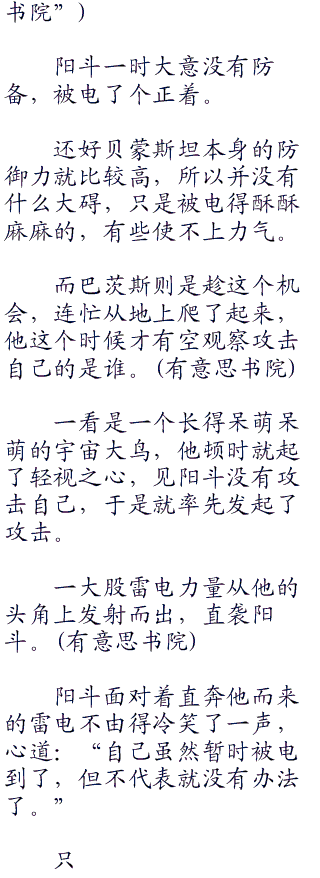 书院”)
阳斗一时大意没有防
备，被电了个正着。
还好贝蒙斯坦本身的防
御力就比较高，所以并没有
什么大碍，只是被电得酥酥
麻麻的，有些使不上力气。
而巴茨斯则是趁这个机
会，连忙从地上爬了起来，
他这个时候才有空观察攻击
自己的是谁。(有意思书院)
一看是一个长得呆萌呆
萌的宇宙大鸟，他顿时就起
了轻视之心，见阳斗没有攻
击自己，于是就率先发起了
攻击。
一大股雷电力量从他的
头角上发射而出，直袭阳
斗。(有意思书院)
阳斗面对着直奔他而来
的雷电不由得冷笑了一声，
心道：“自己虽然暂时被电
到了，但不代表就没有办法
了。”
只